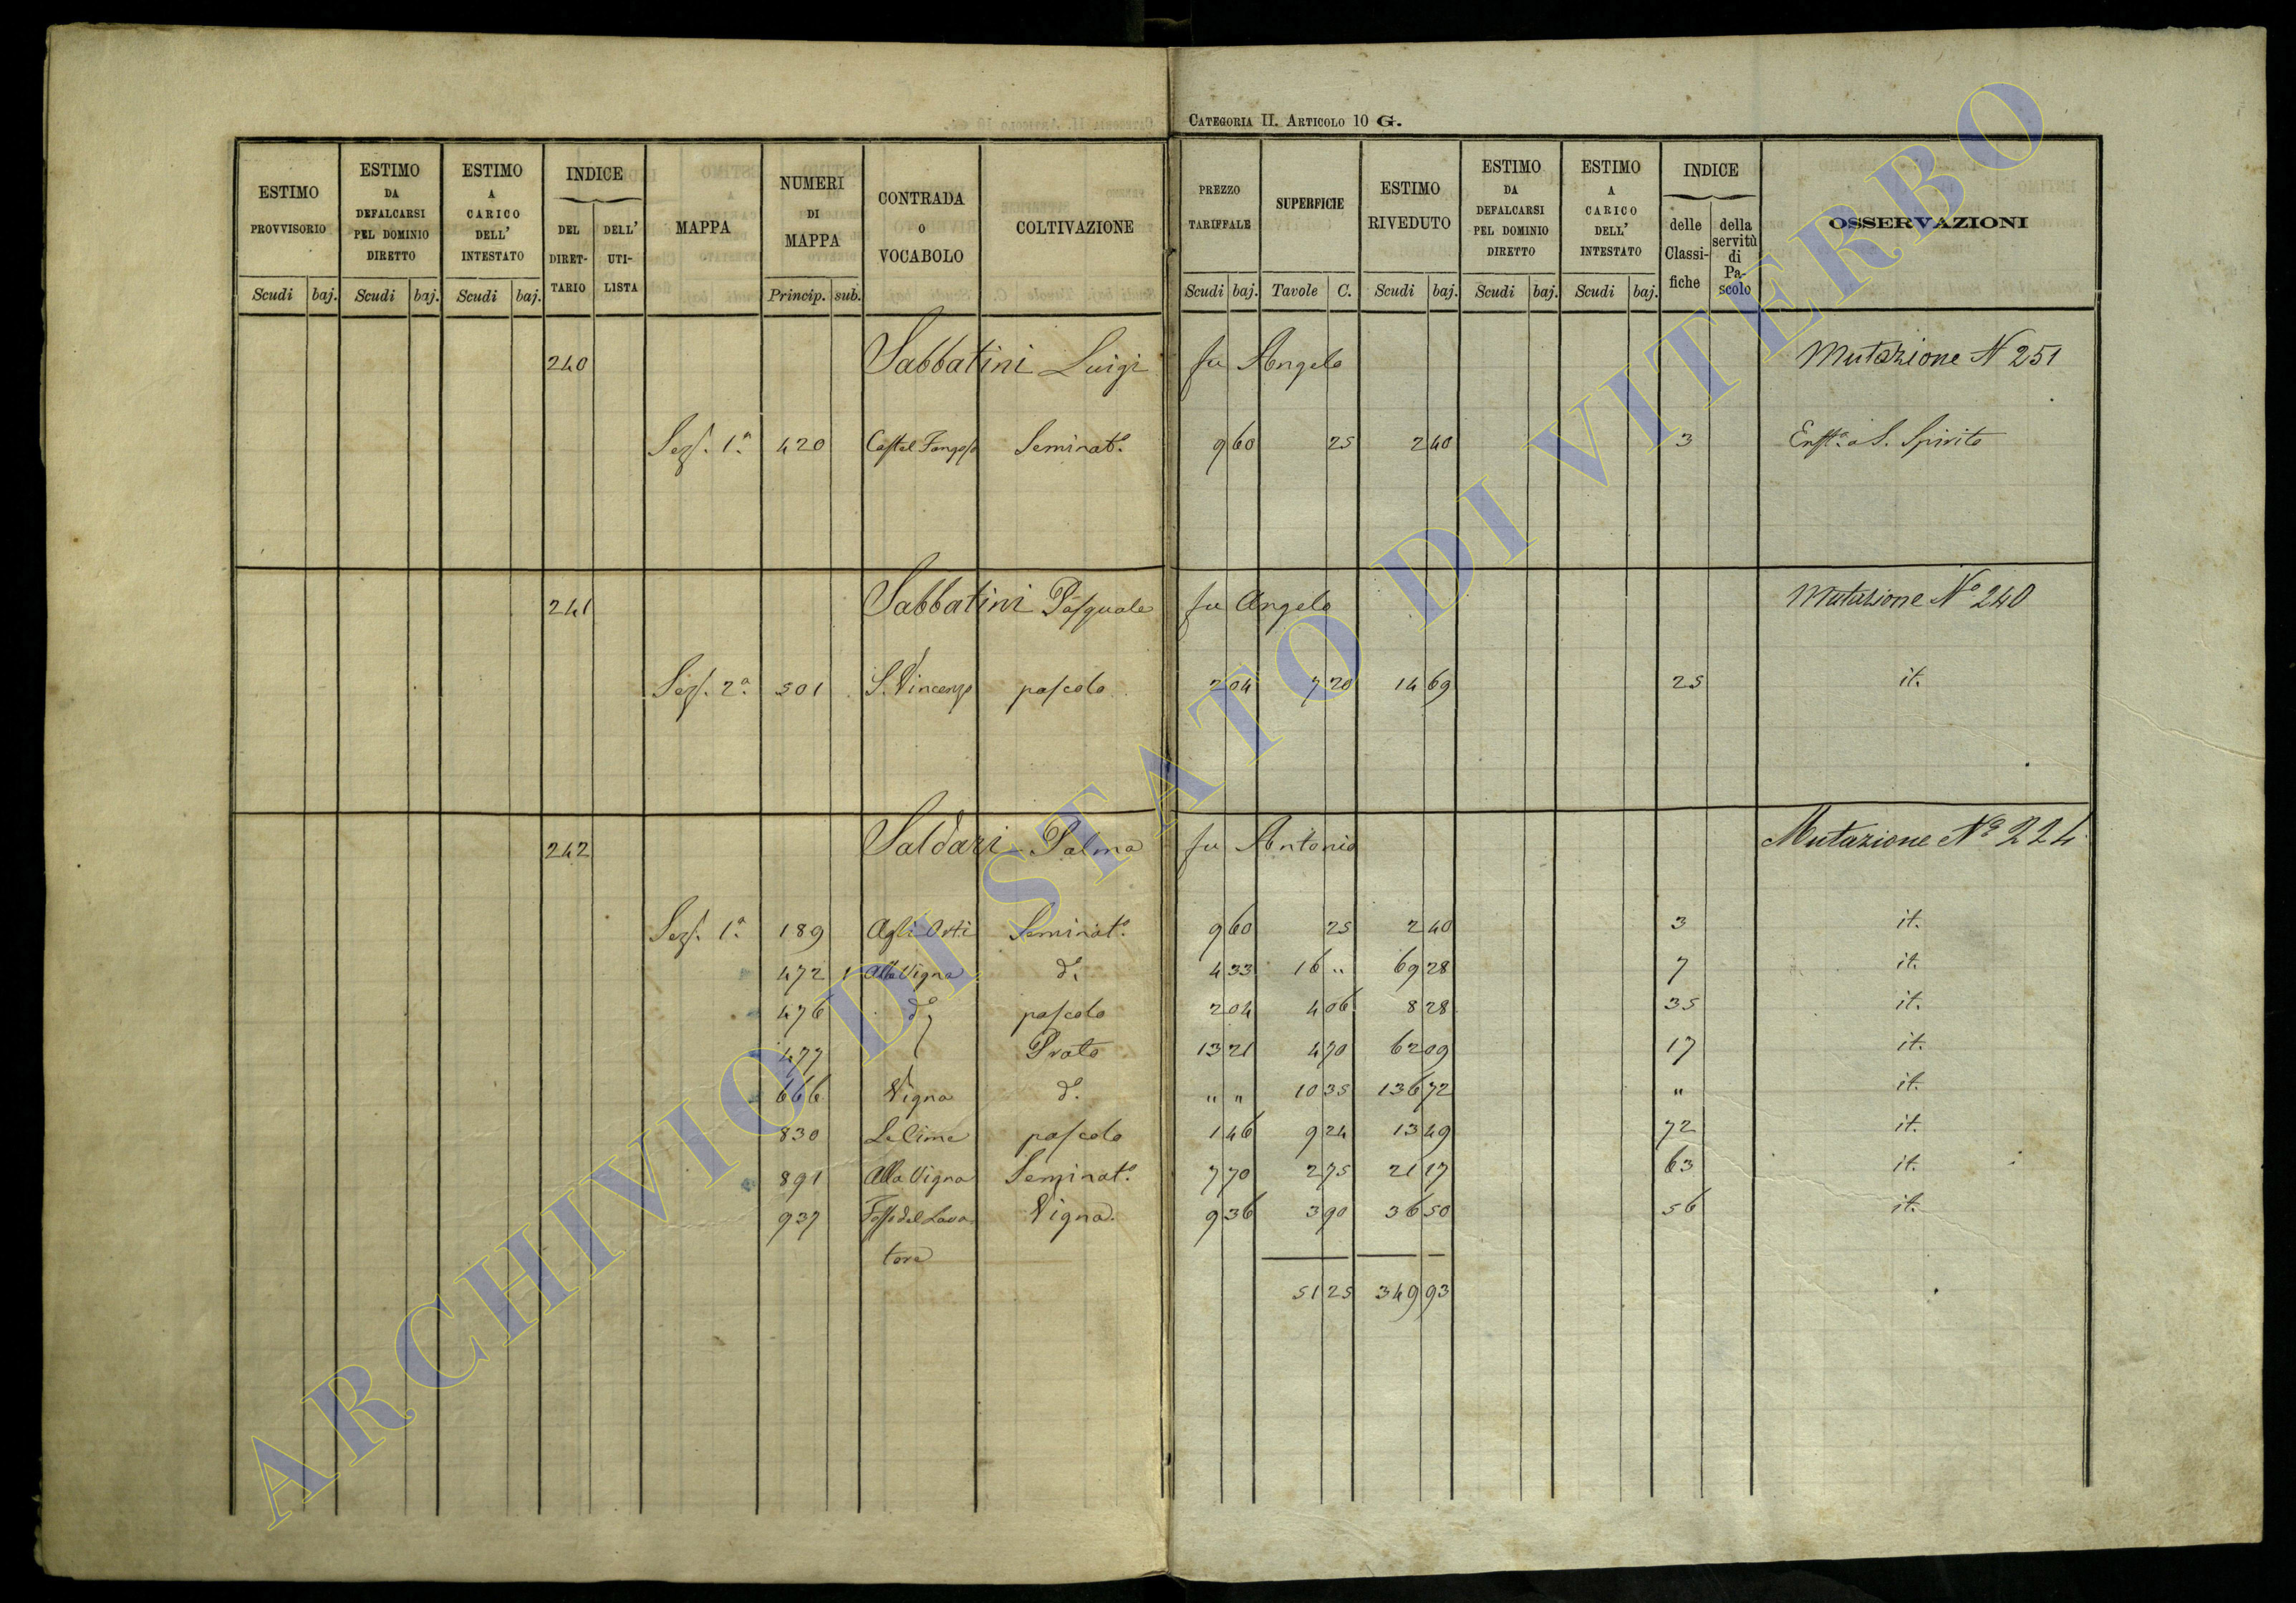 CATEGORIA II. ARTICOLO 10 G.
ESTIMO PROVVISORIO Scudi baj.
ESTIMO DA DEFALCARSI PEL DOMINIO DIRETTO Scudi baj.
ESTIMO A CARICO DELL' INTESTATO Scudi baj.
INDICE DEL DIRET- TARIO DELL' UTI- LISTA
MAPPA
NUMERI DI MAPPA Princip. sub.
CONTRADA O VOCABOLO
COLTIVAZIONE
PREZZO TARIFFALE Scudi baj.
SUPERFICIE Tavole C.
ESTIMO RIVEDUTO Scudi baj.
ESTIMO DA DEFALCARSI PEL DOMINIO DIRETTO Scudi baj.
ESTIMO A CARICO DELL' INTESTATO Scudi baj.
INDICE delle Classi- fiche della servitù di Pa- scolo
OSSERVAZIONI
240 Sabbatini Luigi fu Angelo Mutazione N 251
Sez. 1.a 420 Castel Fangoso Seminat.o 9 60 25 2 40 3 Enft.a a S. Spirito
241 Sabbatini Pasquale fu Angelo Mutazione N.o 240
Sez. 2.a 501 S. Vincenzo pascolo 2 04 7 20 14 69 25 it.
242 Saldari Palma fu Antonio Mutazione N.o 224
Sez. 1.a 189 Agli Orti Seminat.o 9 60 25 2 40 3 it.
472 1 Alla Vigna d.o 4 33 16 " 69 28 7 it.
476 d.o pascolo 2 04 4 06 8 28 35 it.
477 Prato 13 21 4 70 62 09 17 it.
666 Vigna d.o " " 10 35 136 72 " it.
830 Le Cime pascolo 1 46 9 24 13 49 72 it.
891 Alla Vigna Seminat.o 7 70 2 75 21 17 63 it.
937 Fosso del Lava- Vigna. 9 36 3 90 36 50 56 it.
tore
51 25 349 93
ARCHIVIO DI STATO DI VITERBO